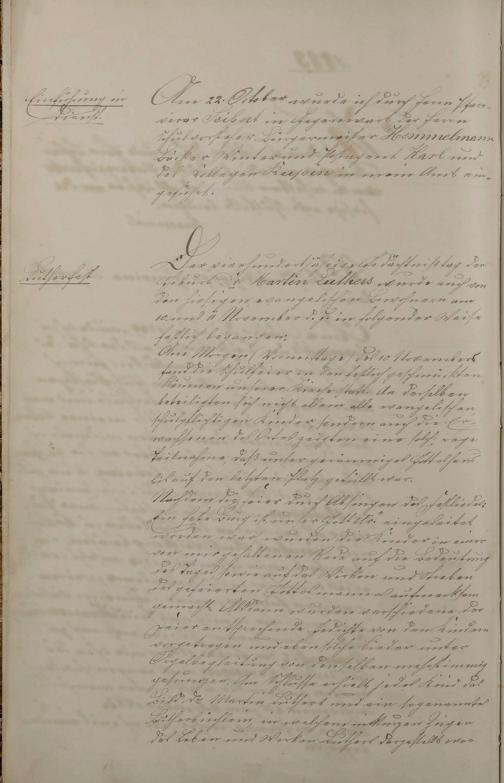 Einführung in
Dienst.
Am 22. October wurde ich durch Herrn Pfar-
rer in Gegenwart der Herrn
Schulvorsteher: Bürgermeister Hommelmann
Bäcker, Winter und Karl und
des Collegen in mein Amt ein-
geführt.
Lutherfest
Der vierhundertjährige Gedächtnistag der
Geburt Dr Martin Luthers wurde auch von
den hiesigen evangelischen Bewohnern am
10. und 11. November d. J. in folgender Weise
festlich begangen.
Am Morgen, Vormittags, des 10 Novembers
fand die Schulfeier in den festlich geschmückten
Räumen unserer Kirche statt. An derselben
beteiligten sich nicht allein alle evangelischen
schulpflichtigen Kinder sondern auch die Er-
wachsenen des Ortes zeigten eine solch rege
Teilnahme, daß unser geräumiges Gotteshaus
bis auf den letzten Platz gefüllt war.
Nachdem die Feier durch Absingen des Festliedes
"Ein feste Burg ist unser Gott etc" eingeleitet
worden war, wurden die Kinder in einer
von mir gehaltenen Rede auf die Bedeutung
des Tages, sowie auf das Wirken und Streben
des gefeierten Gottesmannes aufmerksam
gemacht. Alsdann wurden verschiedene der
Feier entsprechende Gedichte von den Kindern
vorgetragen und ebensolche Lieder unter
Orgelbegleitung von denselben mehrstimmig
gesungen. Am Schlusse erhielt jedes Kind das
Bild Dr Martin Luthers und ein sogenanntes
Lutherbüchlein, in welchem in kurzen Zügen
das Leben und Wirken Luthers dargestellt war